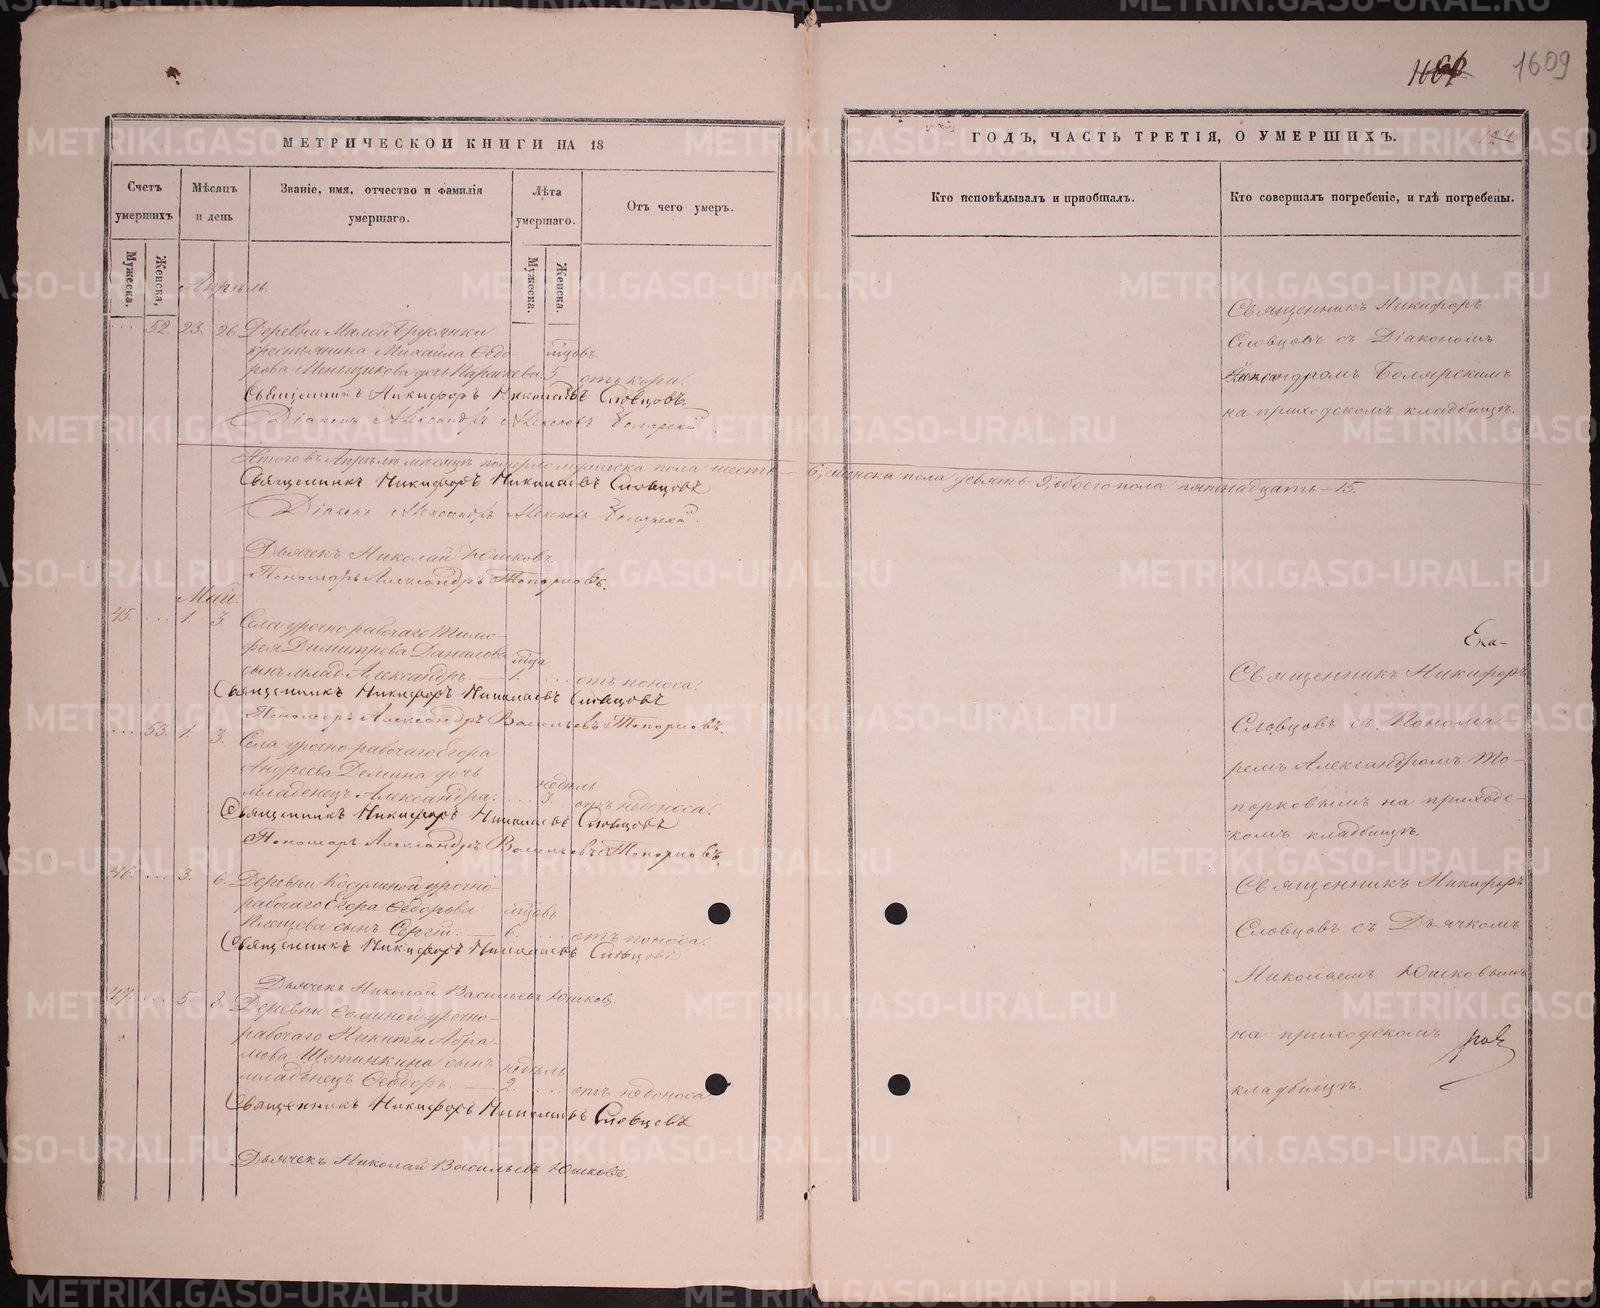 1609
МЕТРИЧЕСКОЙ КНИГИ НА 18
Счетъ умершихъ
Мужеска.
Женска,
Мѣсяцъ и день
Званіе, имя, отчество и фамилія умершаго.
Лѣта умершаго.
Мужеска.
Женска.
Отъ чего умеръ.
Апрѣль
52. 23. 26. Деревни Малой Брусянки
крестьянина Михайла Ѳедо-
рова Меньщикова дочь 5 отъ кори.
Священникъ Никифоръ Николаевъ Словцовъ.
Діаконъ Александръ Алексѣевъ Болярскій.
Итого въ Апрѣлѣ мѣсяцѣ померло мужеска пола шесть – 6, женска пола девять 9, обоего пола пятнадцать – 15.
Священникъ Никифоръ Николаевъ Словцовъ
Діаконъ Александръ Алексѣевъ Болярскій.
Дьячекъ Николай Юшковъ.
Пономарь Александръ Топорковъ.
Май.
45. 1. 3. Села урочно-рабочаго Тимо-
фея Димитріева Данилова
сынъ млад. Александръ. 1. отъ поноса.
Священникъ Никифоръ Николаевъ Словцовъ
Пономарь Александръ Васильевъ Топорковъ.
53. 1. 3. Села урочно-рабочаго Егора
Андреева Демина дочь недѣль
младенецъ Александра. 3. отъ недоноса.
Священникъ Никифоръ Николаевъ Словцовъ
Пономарь Александръ Васильевъ Топорковъ.
46. 3. 6. Деревни Косулиной урочно-
рабочаго Егора Ѳедорова мѣсяцовъ
сынъ Сергій. — 6. отъ поноса.
Священникъ Никифоръ Николаевъ Словцовъ
Дьячекъ Николай Васильевъ Юшковъ.
47. 5. 8. Деревни урочно-
рабочаго Никиты Абра-
мова Щетинкина сынъ недѣль
младенецъ Ѳеодоръ. — 2. отъ недоноса.
Священникъ Никифоръ Николаевъ Словцовъ
Дьячекъ Николай Васильевъ Юшковъ.
ГОДЪ, ЧАСТЬ ТРЕТІЯ, О УМЕРШИХЪ.
Кто исповѣдывалъ и пріобщалъ.
Кто совершалъ погребеніе, и гдѣ погребены.
Священникъ Никифоръ
Словцовъ съ Діакономъ
Александромъ Болярскимъ
на приходскомъ кладбищѣ.
Ека-
Священникъ Никифоръ
Словцовъ съ Понома-
ремъ Александромъ То-
порковымъ на приход-
скомъ кладбищѣ.
Священникъ Никифоръ
Словцовъ съ Дьячкомъ
Николаемъ Юшковымъ
на приходскомъ
кладбищѣ.
METRIKI.GASO-URAL.RU